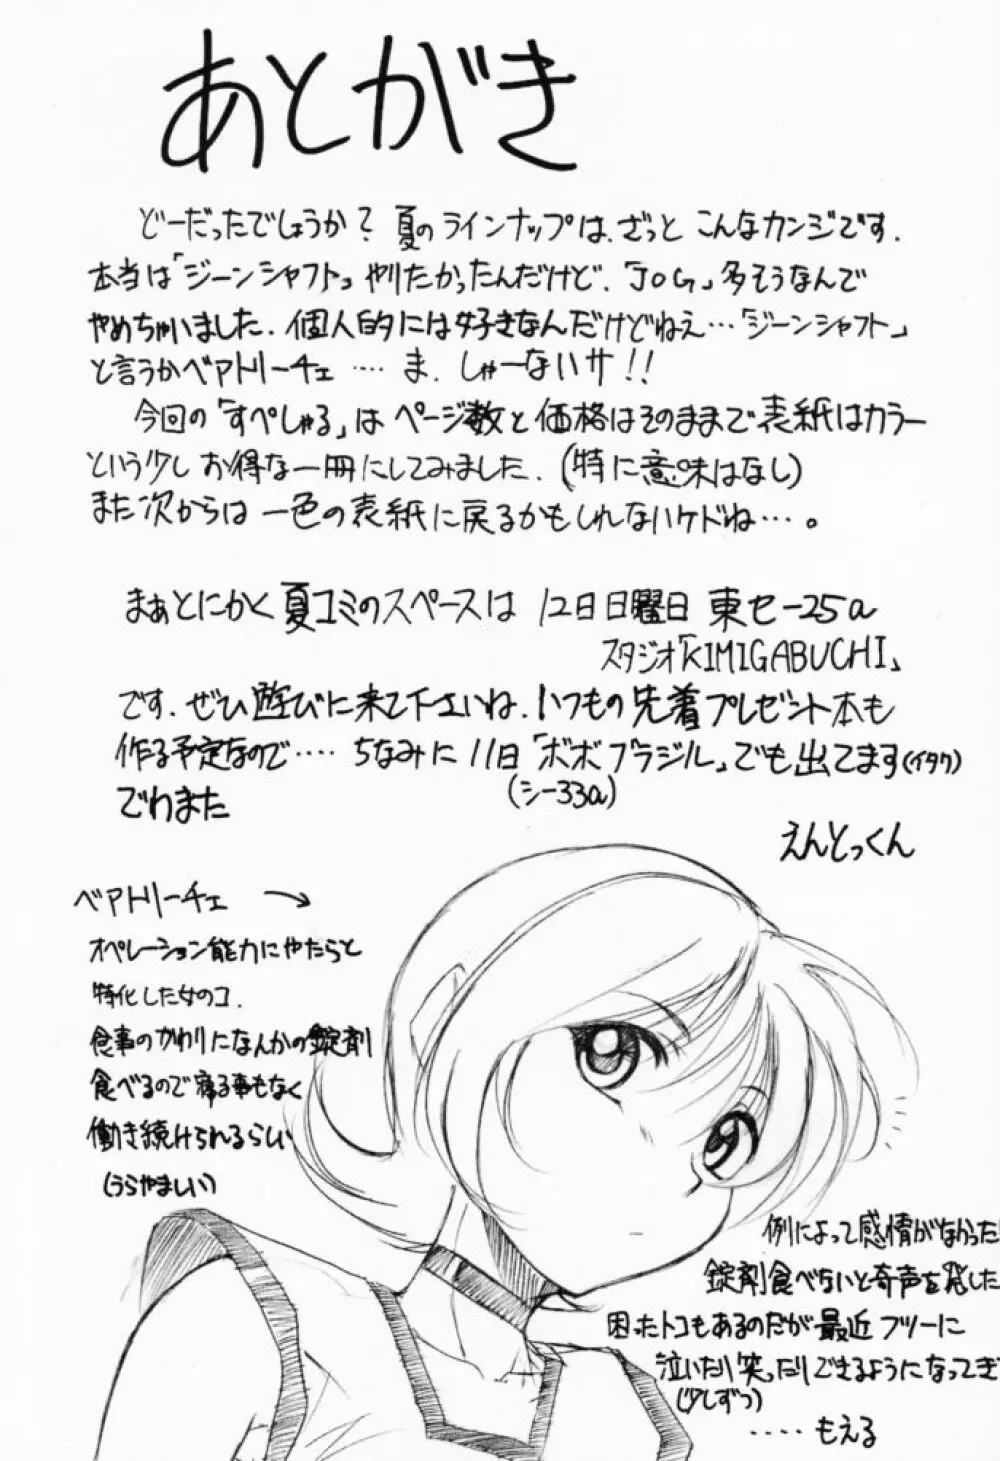 あとがき
どーだったでしょうか？夏のラインナップは、ざっとこんなカンジです.
本当は「ジーンシャフト」やりたかったんだけど、「JOG」多そうなんで
やめちゃいました. 個人的には好きなんだけどねえ…「ジーンシャフト」
と言うかベアトリーチェ …. ま. しゃーないサ!!
今回の「すぺしゃる」はページ数と価格はそのままで表紙はカラー
という少しお得な一冊にしてみました.(特に意味はなし)
また次からは一色の表紙に戻るかもしれないケドね…。
まぁとにかく夏コミのスペースは 12日日曜日 東セー25a
スタジオ「KIMIGABUCHI」
です. ぜひ遊びに来て下さいね. いつもの先着プレゼント本も
作る予定なので…. ちなみに11日「ボボブラジル」でも出てます(イタク)
(シー33a)
でわまた
えんとっくん
ベアトリーチェ →
オペレーション能力にやたらと
特化した女のコ.
食事のかわりになんかの錠剤
食べるので寝る事もなく
働き続けられるらしい
(うらやましい)
例によって感情がなかった
錠剤食べないと奇声を発した
困ったトコもあるのだが最近フツーに
泣いたり笑ったりできるようになってき
(少しずつ)
....もえる